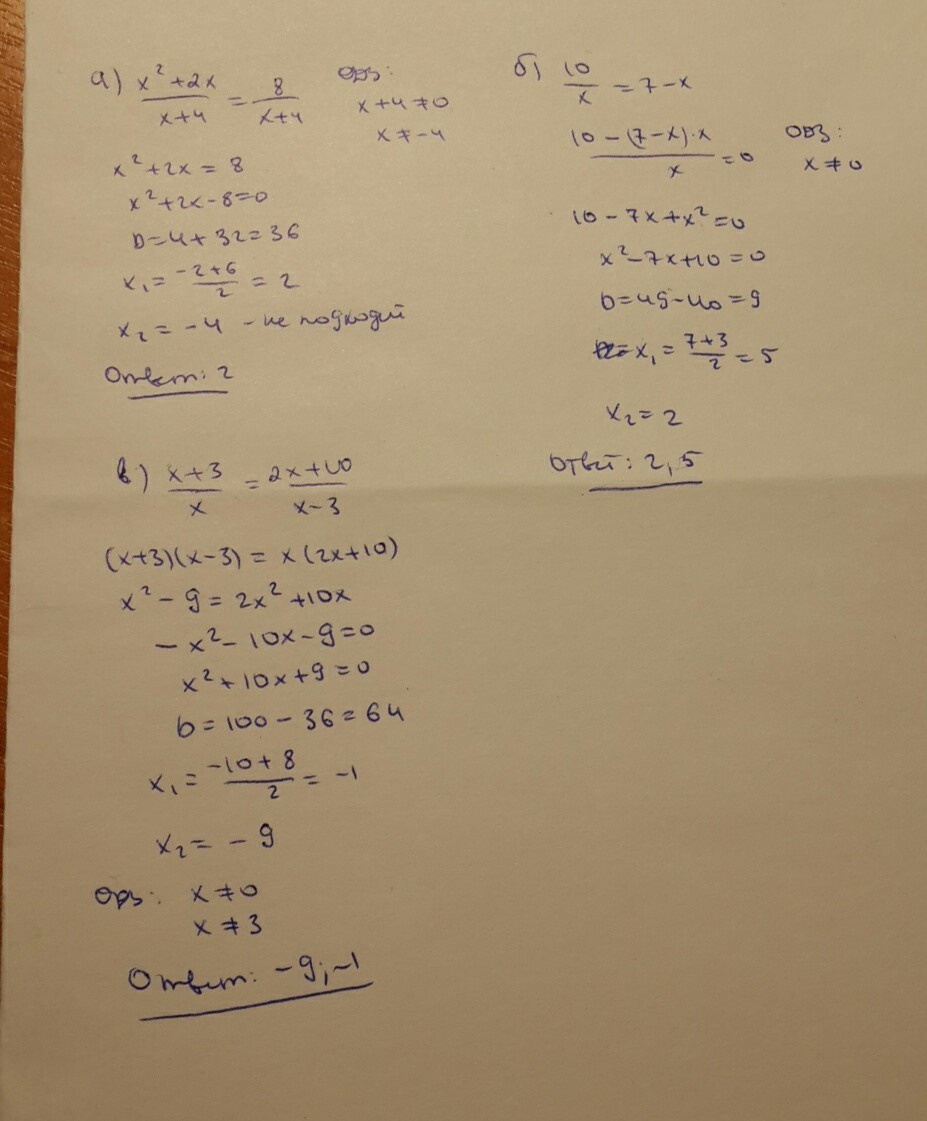 а) (x²+2x)/(x+4) = 8/(x+4)
ОДЗ:
x+4≠0
x≠-4
x²+2x=8
x²+2x-8=0
D=4+32=36
x₁=(-2+6)/2=2
x₂=-4 - не подходит
Ответ: 2
б) 10/x=7-x
(10-(7-x)·x)/x=0
ОДЗ:
x≠0
10-7x+x²=0
x²-7x+10=0
D=49-40=9
x₁=(7+3)/2=5
x₂=2
Ответ: 2,5
в) (x+3)/x=(2x+10)/(x-3)
(x+3)(x-3)=x(2x+10)
x²-9=2x²+10x
-x²-10x-9=0
x²+10x+9=0
D=100-36=64
x₁=(-10+8)/2=-1
x₂=-9
ОДЗ: x≠0
x≠3
Ответ: -9;-1